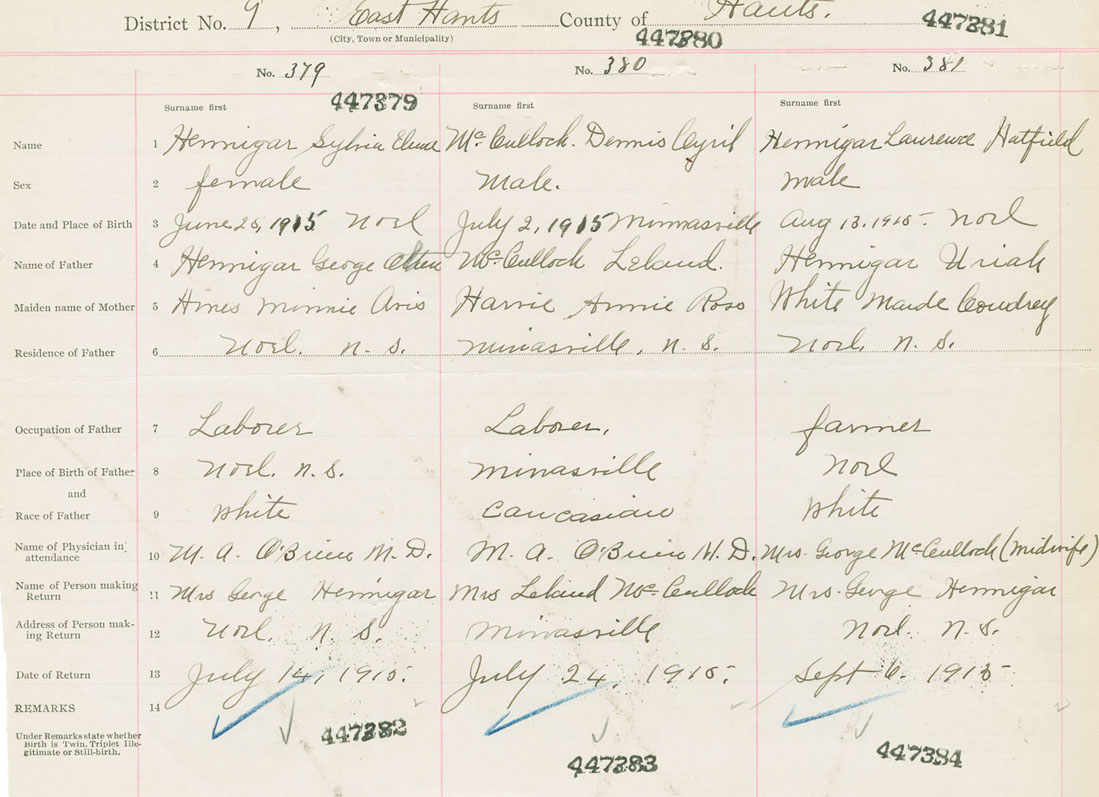 District No. 9, East Hants County of Hants.
(City, Town or Municipality)
447380 447381
No. 379 No. 380 No. 381
447379
Surname first Surname first Surname first
Name 1 Hennigar Sylvia McCullock. Dennis Cyril Hennigar Laurence Hatfield
Sex 2 female Male. male
Date and Place of Birth 3 June 1915 Noel July 2, 1915 Minnasville Aug 13, 1915- Noel
Name of Father 4 Hennigar George McCullock Leland. Hennigar Uriah
Maiden name of Mother 5 Hines Minnie Avis Harvie Annie Ross White Maude
Residence of Father 6 Noel. N. S. Minasville, N. S. Noel, N. S.
Occupation of Father 7 Laborer Laborer, farmer
Place of Birth of Father 8 Noel. N. S. Minasville Noel
and
Race of Father 9 White Caucasian White
Name of Physician in attendance 10 M. A. O'Brien M. D. M. A. O'Brien M. D. Mrs. George McCullock (Midwife)
Name of Person making Return 11 Mrs George Hennigar Mrs Leland McCullock Mrs. George Hennigar
Address of Person making Return 12 Noel. N. S. Minasville Noel. N. S.
Date of Return 13 July 14, 1915. July 24, 1915. Sept 6. 1915
REMARKS 14
Under Remarks state whether
Birth is Twin, Triplet Ille-
gitimate or Still-birth.
447382 447383 447384